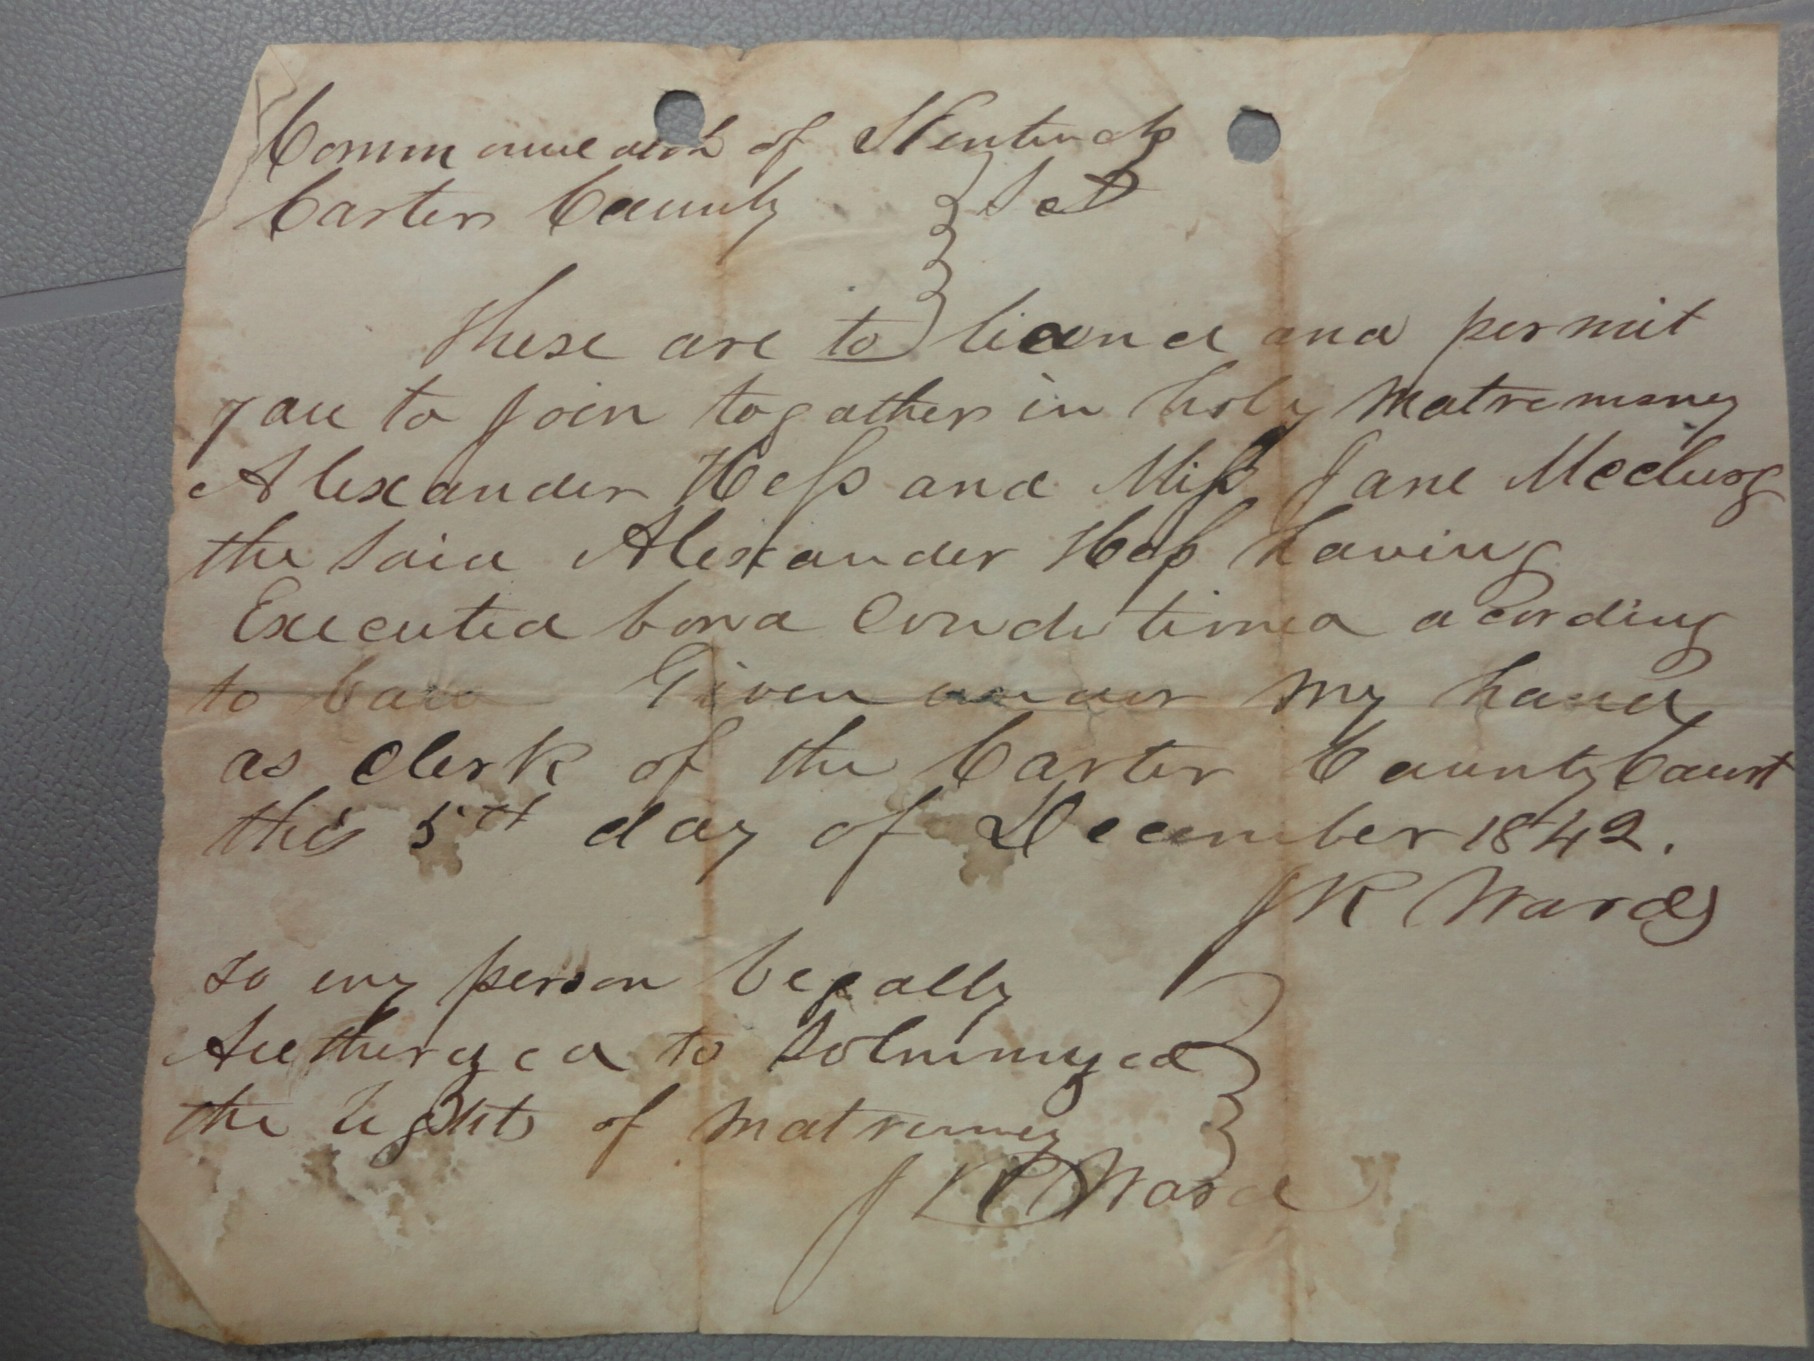 Commonwealth of Kentucky
Carter County } Sct
These are to licence and permit
you to Join together in holy Matremony
Alexander Hess and Miss Jane Mcclurg
the said Alexander Hess having
Executed bond Conditioned acording
to Law Given under my hand
as Clerk of the Carter County Court
this 5th day of December 1842.
J R Ward
to eny person Legally
Autheryced to Solemnyed
the rights of Matremony
J R Ward